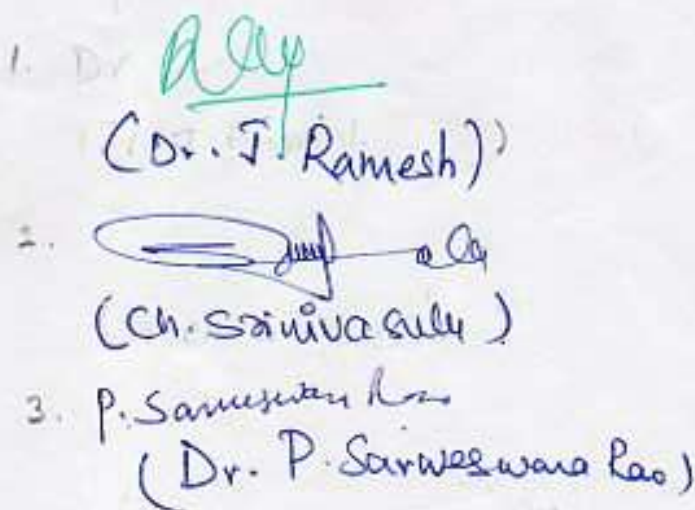 1. Dr
(Dr. J. Ramesh)
2.
(Ch. Srinivasulu)
3. P. Sarveswara Rao
(Dr. P. Sarveswara Rao)